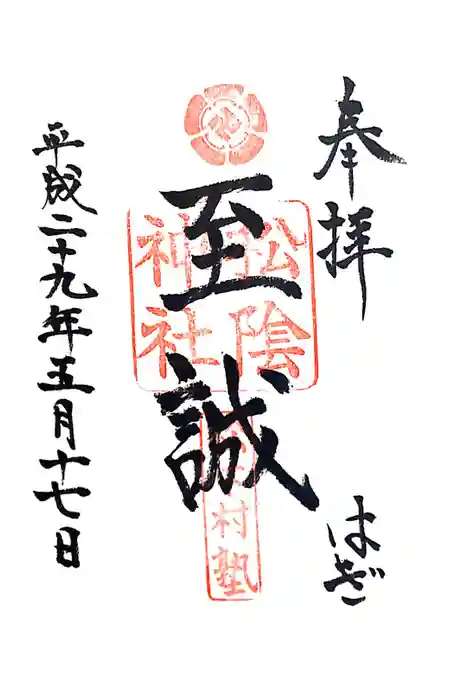 奉拝
はぎ
松陰
神社
至誠
松下村塾
平成二十九年五月十七日